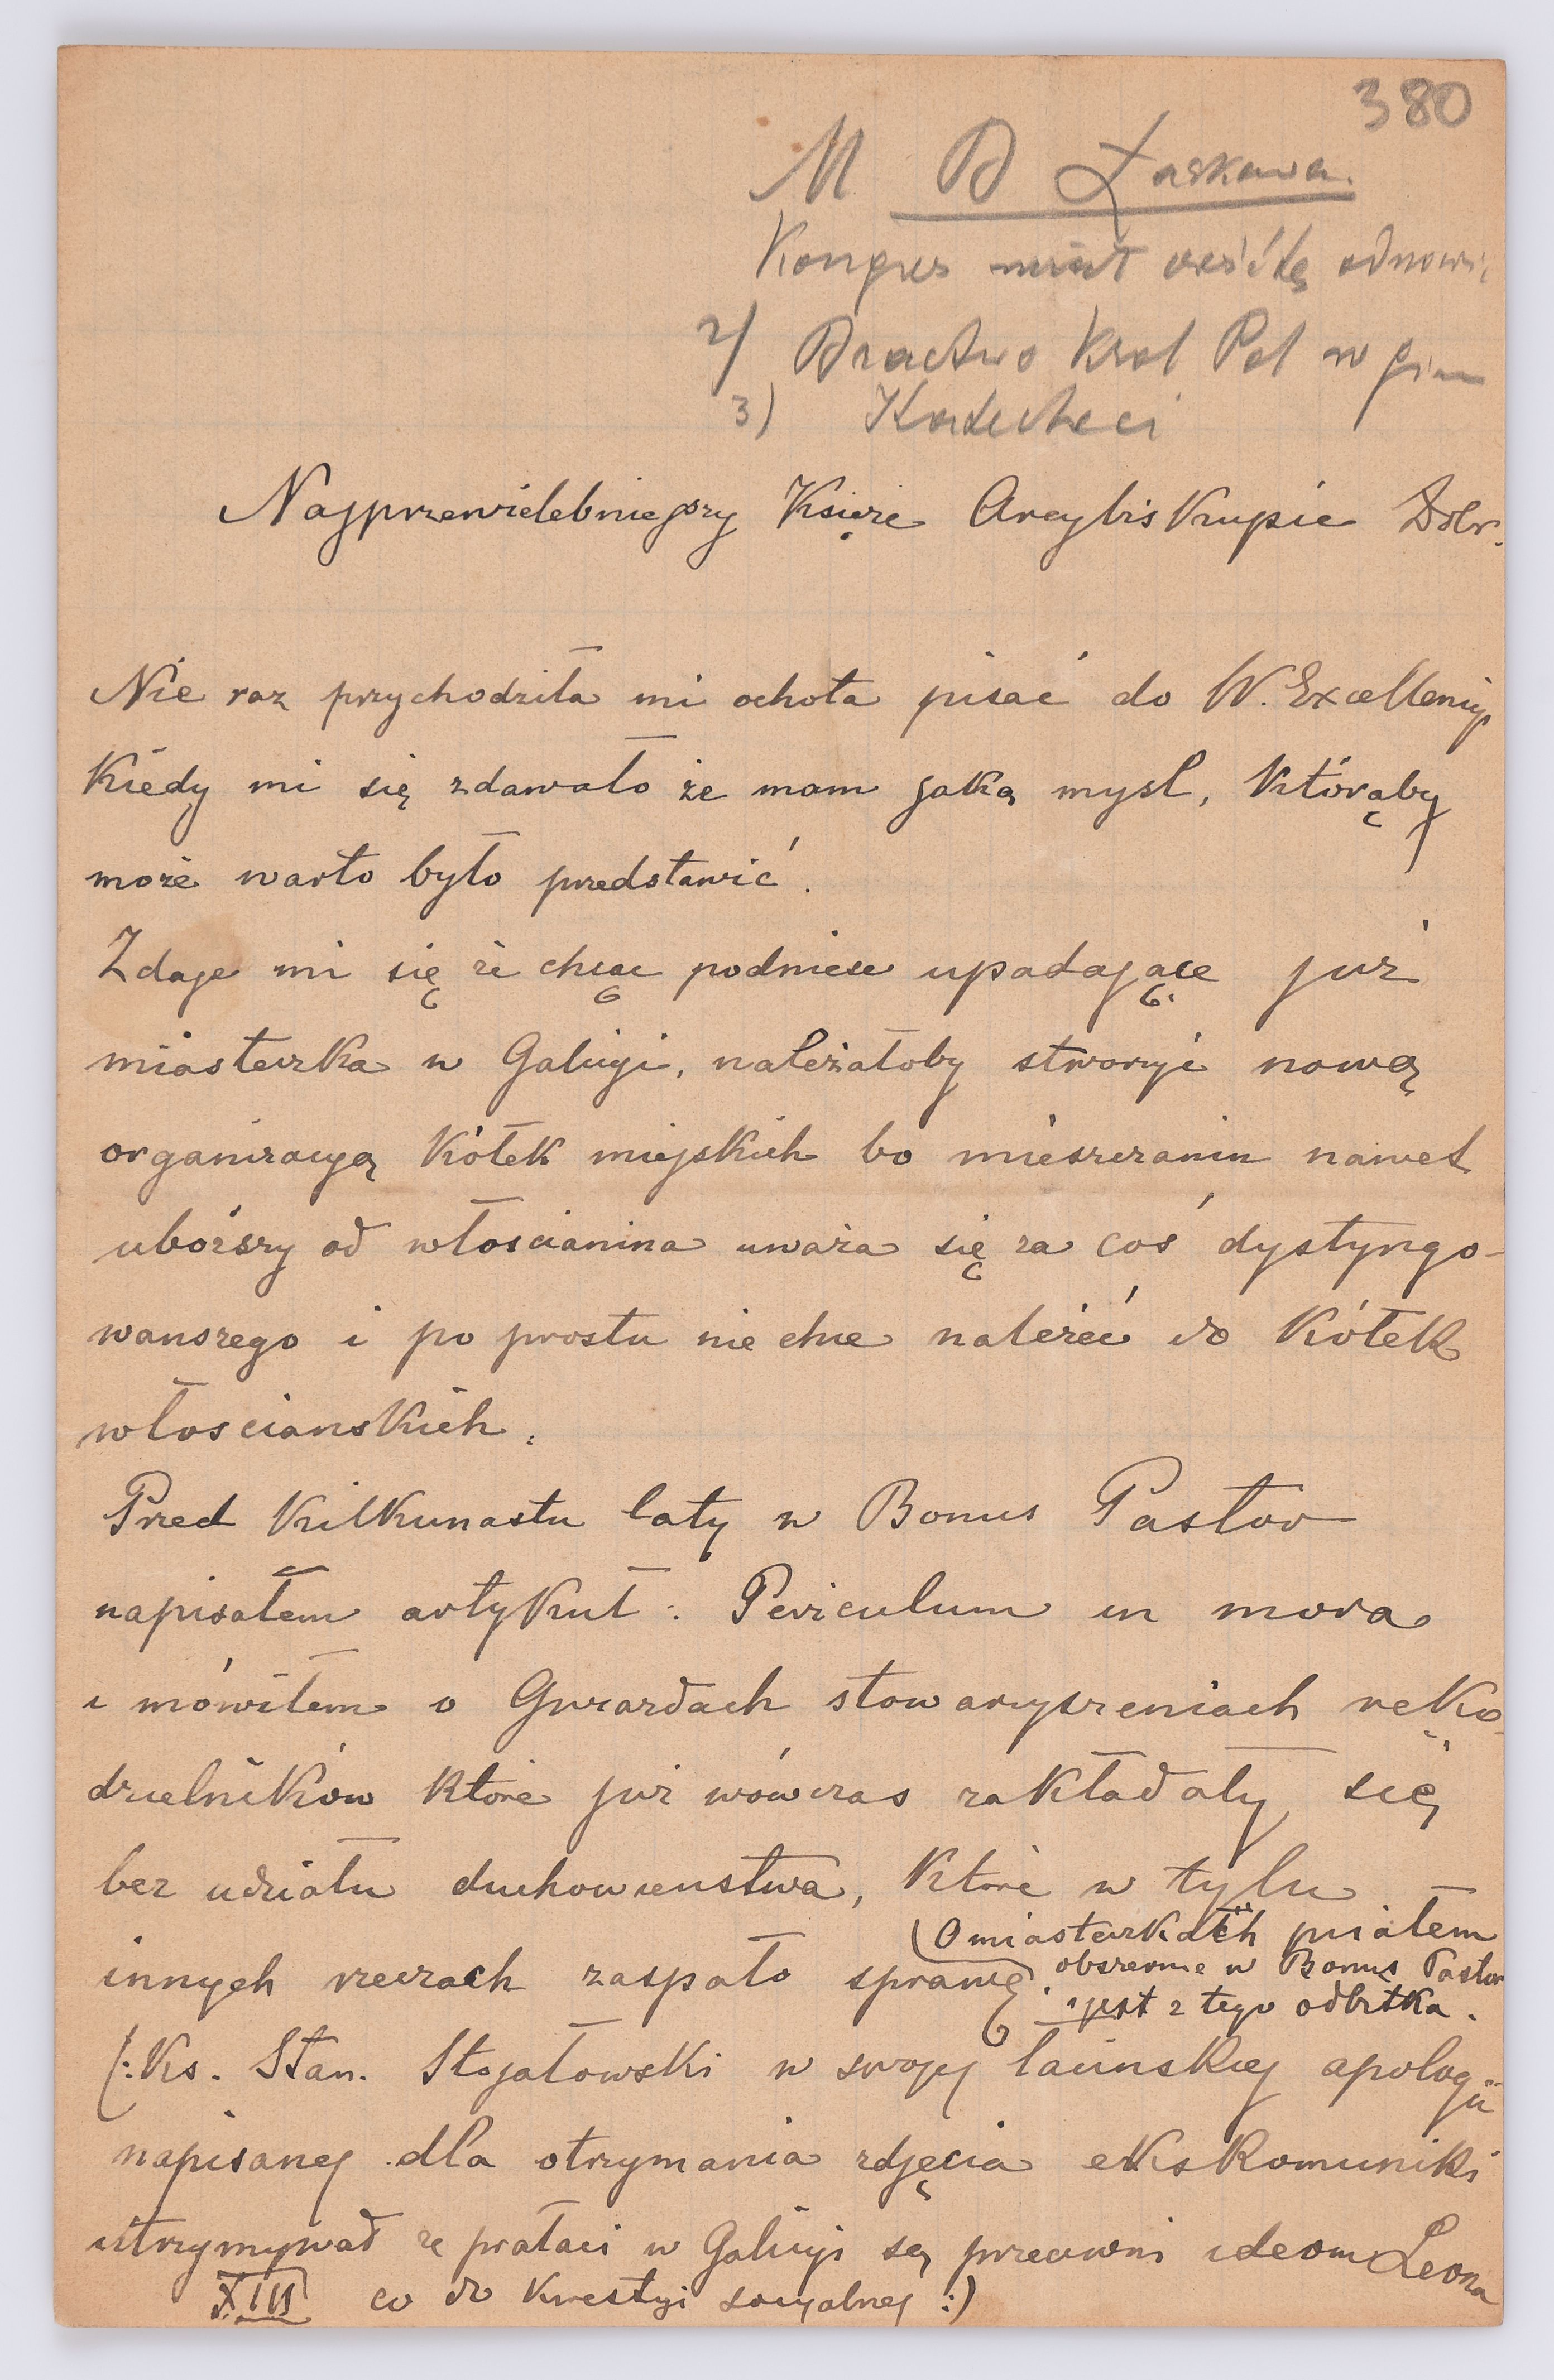 380
M B Łaskawa.
Kongres miast odnowić
2) Bractwo Krol Pol w gim
3) Katecheci
Najprzewielebniejszy Księże Arcybiskupie Dobr.
Nie raz przychodziła mi ochota pisać do W. Excellencyi
Kiedy mi się zdawało że mam jaką mysl, którąby
może warto było przedstawić.
Zdaje mi się że chcąc podniesc upadające już
miasteczka w Galicyi, należałoby stworzyć nową
organizacyą Kółek miejskich bo mieszczanin nawet
uboższy od włoscianina uważa się za coś dystyngo-
wanszego i po prostu nie chce należeć do Kółek
włoscianskich.
Przed Kilkunastu laty w Bonus Pastor
napisałem artykuł: Periculum in mora
i mówiłem o Gwiazdach stowarzyszeniach ręko-
dzielników które już wówczas zakładały się
bez udziału duchowienstwa, które w tylu
innych rzeczach zaspało sprawę.
(O miasteczkach pisałem
obszernie w Bonus Pastor
i jest z tego odbitka.
(:Ks. Stan. Stojałowski w swojej łacinskiej apologii
napisanej dla otrzymania zdjęcia ekskomuniki
utrzymywał że prałaci w Galicyi są przeciwni ideom Leona
XIII co do Kwestyi socyalnej :)